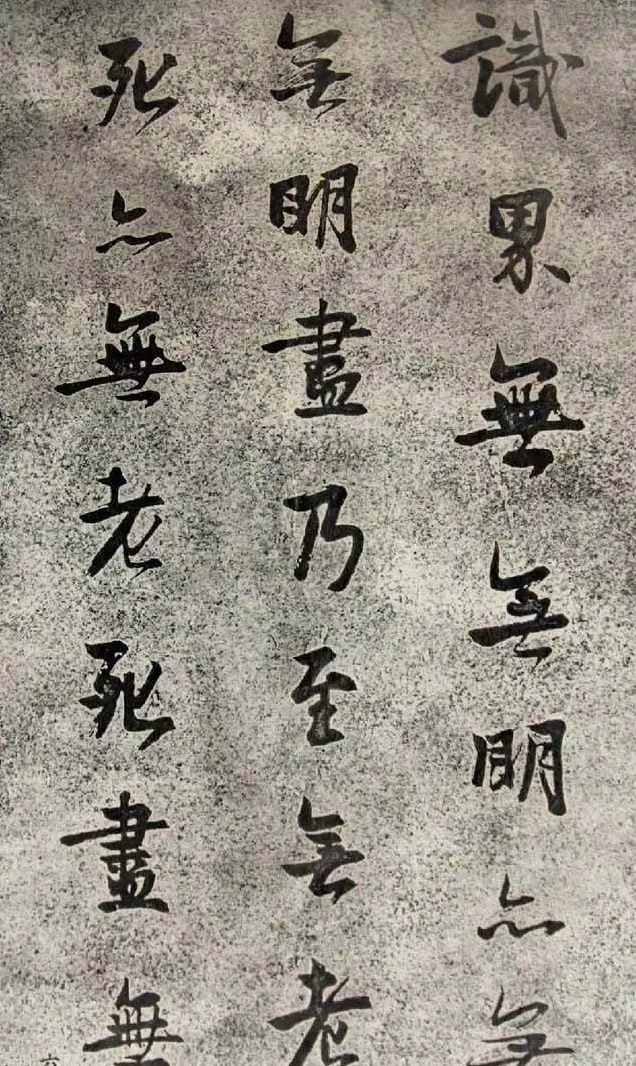 識界無無明亦無
無明盡乃至無老
死亦無老死盡無
六